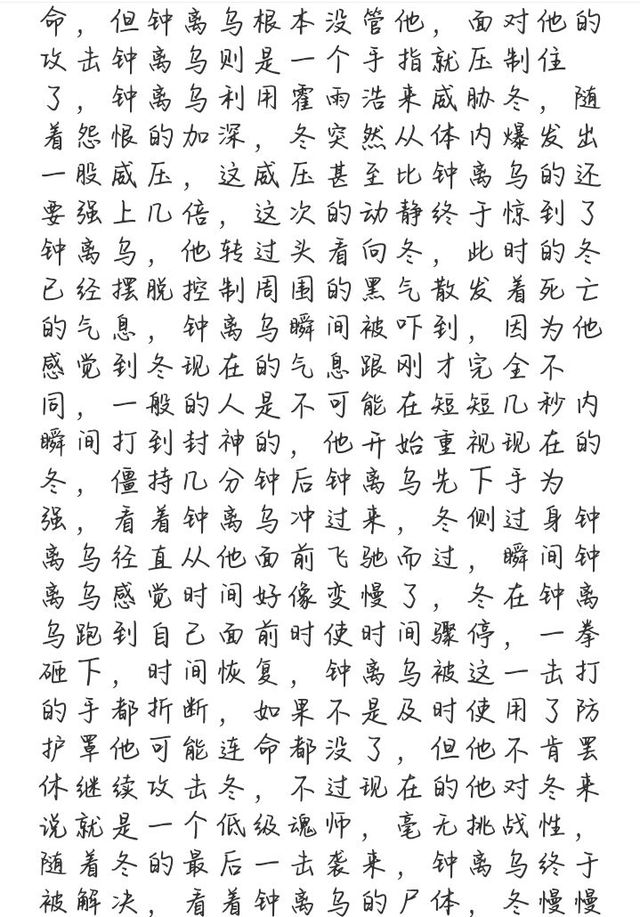 命，但钟离乌根本没管他，面对他的
攻击钟离乌则是一个手指就压制住
了，钟离乌利用霍雨浩来威胁冬，随
着怨恨的加深，冬突然从体内爆发出
一股威压，这威压甚至比钟离乌的还
要强上几倍，这次的动静终于惊到了
钟离乌，他转过头看向冬，此时的冬
已经摆脱控制周围的黑气散发着死亡
的气息，钟离乌瞬间被吓到，因为他
感觉到冬现在的气息跟刚才完全不
同，一般的人是不可能在短短几秒内
瞬间打到封神的，他开始重视现在的
冬，僵持几分钟后钟离乌先下手为
强，看着钟离乌冲过来，冬侧过身钟
离乌径直从他面前飞驰而过，瞬间钟
离乌感觉时间好像变慢了，冬在钟离
乌跑到自己面前时使时间骤停，一拳
砸下，时间恢复，钟离乌被这一击打
的手都折断，如果不是及时使用了防
护罩他可能连命都没了，但他不肯罢
休继续攻击冬，不过现在的他对冬来
说就是一个低级魂师，毫无挑战性，
随着冬的最后一击袭来，钟离乌终于
被解决，看着钟离乌的尸体，冬慢慢